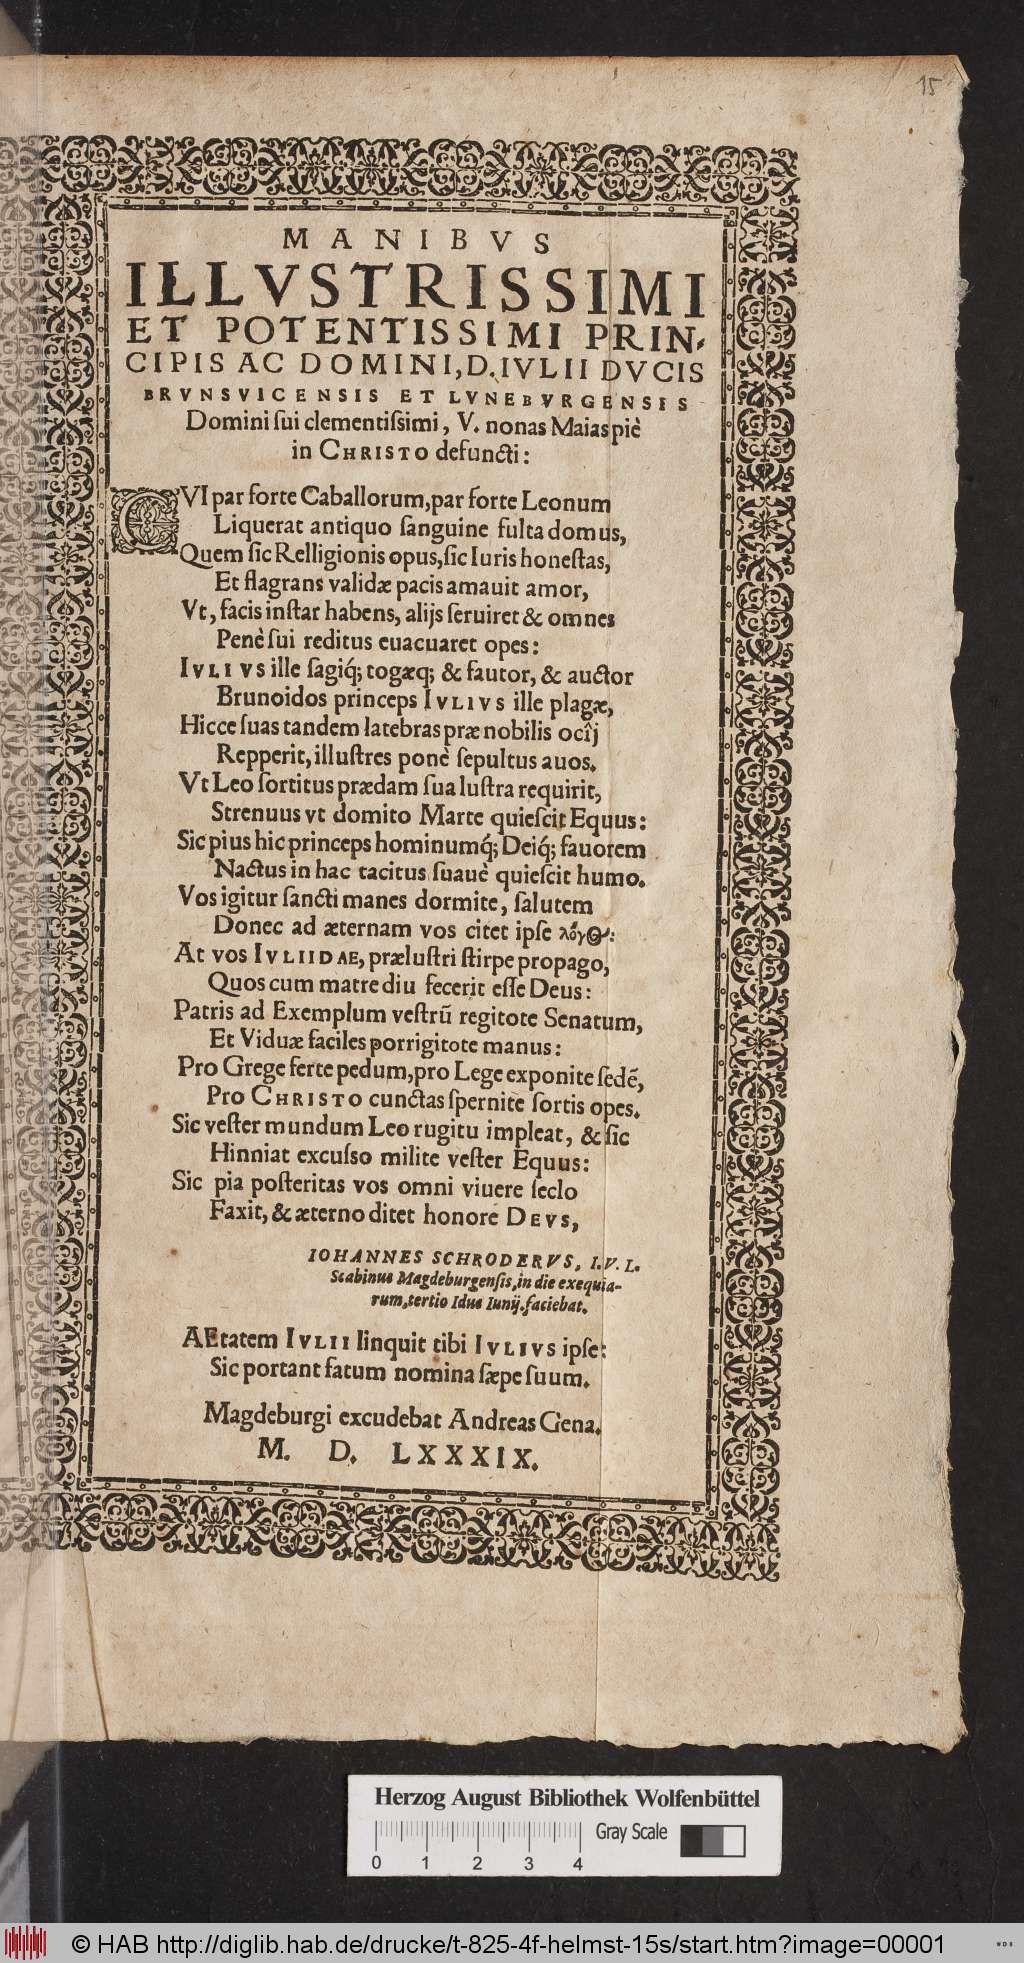 15
MANIBVS
ILLVSTRISSIMI
ET POTENTISSIMI PRIN-
CIPIS AC DOMINI, D. IVLII DVCIS
BRVNSVICENSIS ET LVNEBVRGENSIS
Domini ſui clementiſsimi, V. nonas Maias piè
in CHRISTO defuncti:
CVI par forte Caballorum, par forte Leonum
Liquerat antiquo ſanguine fulta domus,
Quem ſic Relligionis opus, ſic Iuris honeſtas,
Et flagrans validæ pacis amauit amor,
Vt, facis inſtar habens, alijs ſeruiret & omnes
Penè ſui reditus euacuaret opes:
IVLIVS ille ſagiq́; togæq́; & fautor, & auctor
Brunoidos princeps IVLIVS ille plagæ,
Hicce ſuas tandem latebras præ nobilis ocîj
Repperit, illuſtres ponè ſepultus auos.
Vt Leo ſortitus prædam ſua luſtra requirit,
Strenuus vt domito Marte quieſcit Equus:
Sic pius hic princeps hominumq́; Deiq́; fauorem
Nactus in hac tacitus ſuauè quieſcit humo.
Vos igitur ſancti manes dormite, ſalutem
Donec ad æternam vos citet ipſe λόγος:
At vos IVLIIDAE, præluſtri ſtirpe propago,
Quos cum matre diu fecerit eſſe Deus:
Patris ad Exemplum veſtrũ regitote Senatum,
Et Viduæ faciles porrigitote manus:
Pro Grege ferte pedum, pro Lege exponite ſedẽ,
Pro CHRISTO cunctas ſpernite ſortis opes.
Sic veſter mundum Leo rugitu impleat, & ſic
Hinniat excuſſo milite veſter Equus:
Sic pia poſteritas vos omni viuere ſeclo
Faxit, & æterno ditet honore DEVS,
IOHANNES SCHRODERVS, I. V. L.
Scabinus Magdeburgenſis, in die exequia-
rum, tertio Idus Iunij. faciebat.
AEtatem IVLII linquit tibi IVLIVS ipſe:
Sic portant fatum nomina ſæpe ſuum.
Magdeburgi excudebat Andreas Gena.
M. D. LXXXIX.
Herzog August Bibliothek Wolfenbüttel
Gray Scale
0 1 2 3 4
© HAB http://diglib.hab.de/drucke/t-825-4f-helmst-15s/start.htm?image=00001